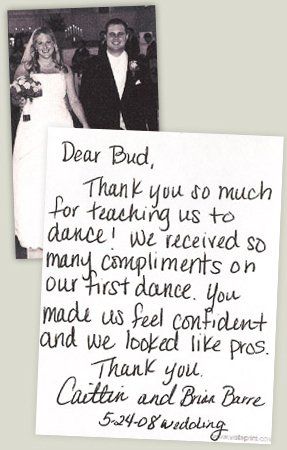 Dear Bud,
Thank you so much
for teaching us to
dance! We received so
many compliments on
our first dance. You
made us feel confident
and we looked like pros.
Thank you,
Caitlin and Brian Barre
5-24-08 wedding